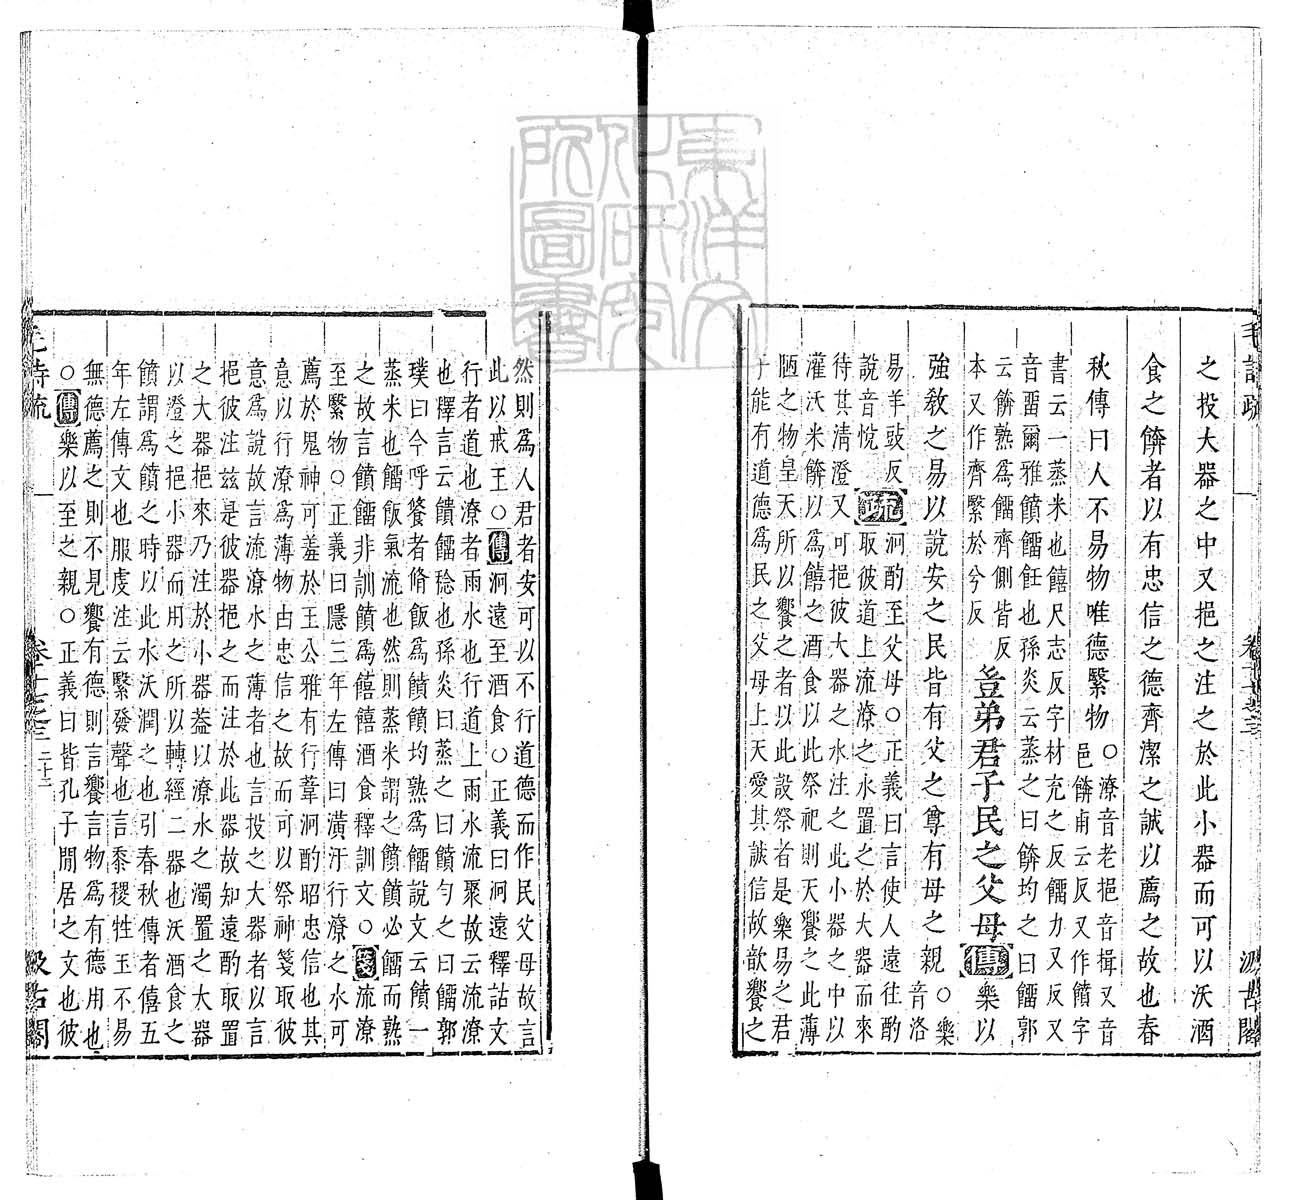 毛詩疏
之投大器之中又挹之注之於此小器而可以沃酒
食之餴者以有忠信之德齊潔之誠以薦之故也春
秋傳曰人不易物唯德繄物○潦音老挹音揖又音
邑餴甫云反又作饙字
書云一蒸米也饎尺志反字材充之反餾力又反又
音畱爾雅饙餾飪也孫炎云蒸之曰餴均之曰餾郭
云餴熟爲餾齊側皆反
本又作齊繄於兮反
豈弟君子民之父母傳樂以
強敎之易以說安之民皆有父之尊有母之親○樂
音洛
易羊豉反
說音悅
疏泂酌至父母○正義曰言使人遠往酌
取彼道上流潦之水置之於大器而來
待其清澄又可挹彼大器之水注之此小器之中以
灌沃米餴以爲饎之酒食以此祭祀則天饗之此薄
陋之物皇天所以饗之者以此設祭者是樂易之君
子能有道德爲民之父母上天愛其誠信故歆饗之
然則爲人君者安可以不行道德而作民父母故言
此以戒王○傳泂遠至酒食○正義曰泂遠釋詁文
行者道也潦者雨水也行道上雨水流聚故云流潦
也釋言云饙餾稔也孫炎曰蒸之曰饙勻之曰餾郭
璞曰今呼䬸者脩飯爲饙饙均熟爲餾說文云饙一
蒸米也餾飯氣流也然則蒸米謂之饙饙必餾而熟
之故言饙餾非訓饙爲饎饎酒食釋訓文○箋流潦
至繄物○正義曰隱三年左傳曰潢汙行潦之水可
薦於鬼神可羞於王公雅有行葦泂酌昭忠信也其
意以行潦爲薄物由忠信之故而可以祭神箋取彼
意爲說故言流潦水之薄者也言投之大器者以言
挹彼注茲是彼器挹之而注於此器故知遠酌取置
之大器挹來乃注於小器蓋以潦水之濁置之大器
以澄之挹小器而用之所以轉經二器也沃酒食之
饙謂爲饙之時以此水沃潤之也引春秋傳者僖五
年左傳文也服虔注云繄發聲也言黍稷牲玉不易
無德薦之則不見饗有德則言饗言物爲有德用也
○傳樂以至之親○正義曰皆孔子閒居之文也彼